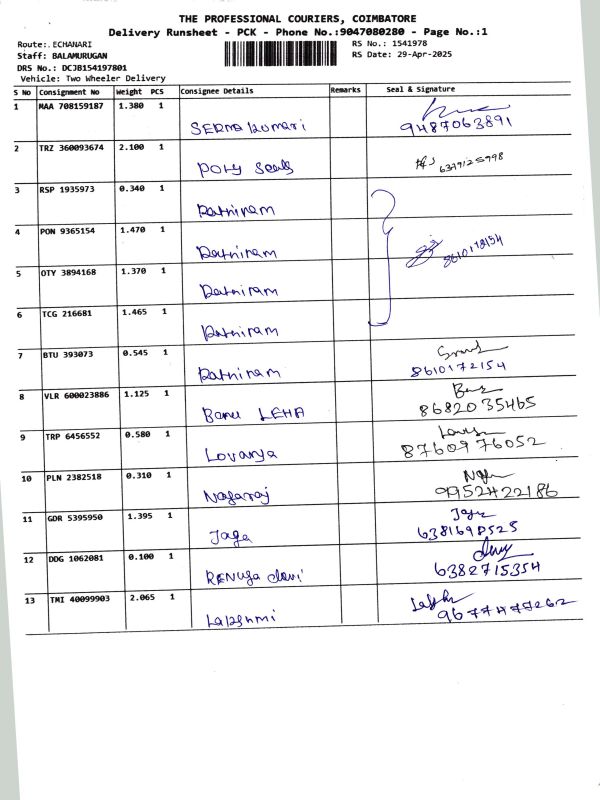 THE PROFESSIONAL COURIERS, COIMBATORE
Delivery Runsheet - PCK - Phone No.:9047080280 - Page No.:1
Route:. ECHANARI RS No.: 1541978
Staff: BALAMURUGAN RS Date: 29-Apr-2025
DRS No.: DCJB154197801
Vehicle: Two Wheeler Delivery
S No Consignment No Weight PCS Consignee Details Remarks Seal & Signature
1 MAA 708159187 1.380 1
Kumari 9487063891
2 TRZ 360093674 2.100 1
Poly Seals
3 RSP 1935973 0.340 1
Ratniram
4 PON 9365154 1.470 1
Ratniram 8610172154
5 OTY 3894168 1.370 1
Ratniram
6 TCG 216681 1.465 1
Ratniram
7 BTU 393073 0.545 1
Ratniram 8610172154
8 VLR 600023886 1.125 1
Banu LEHA 8682035465
9 TRP 6456552 0.580 1
Lovanya 8760976052
10 PLN 2382518 0.310 1
Nagaraj 9952422186
11 GDR 5395950 1.395 1
Jaga 6381698525
12 DDG 1062081 0.100 1
RENuga devi 6382715354
13 TMI 40099903 2.065 1
Lakshmi 9677477262